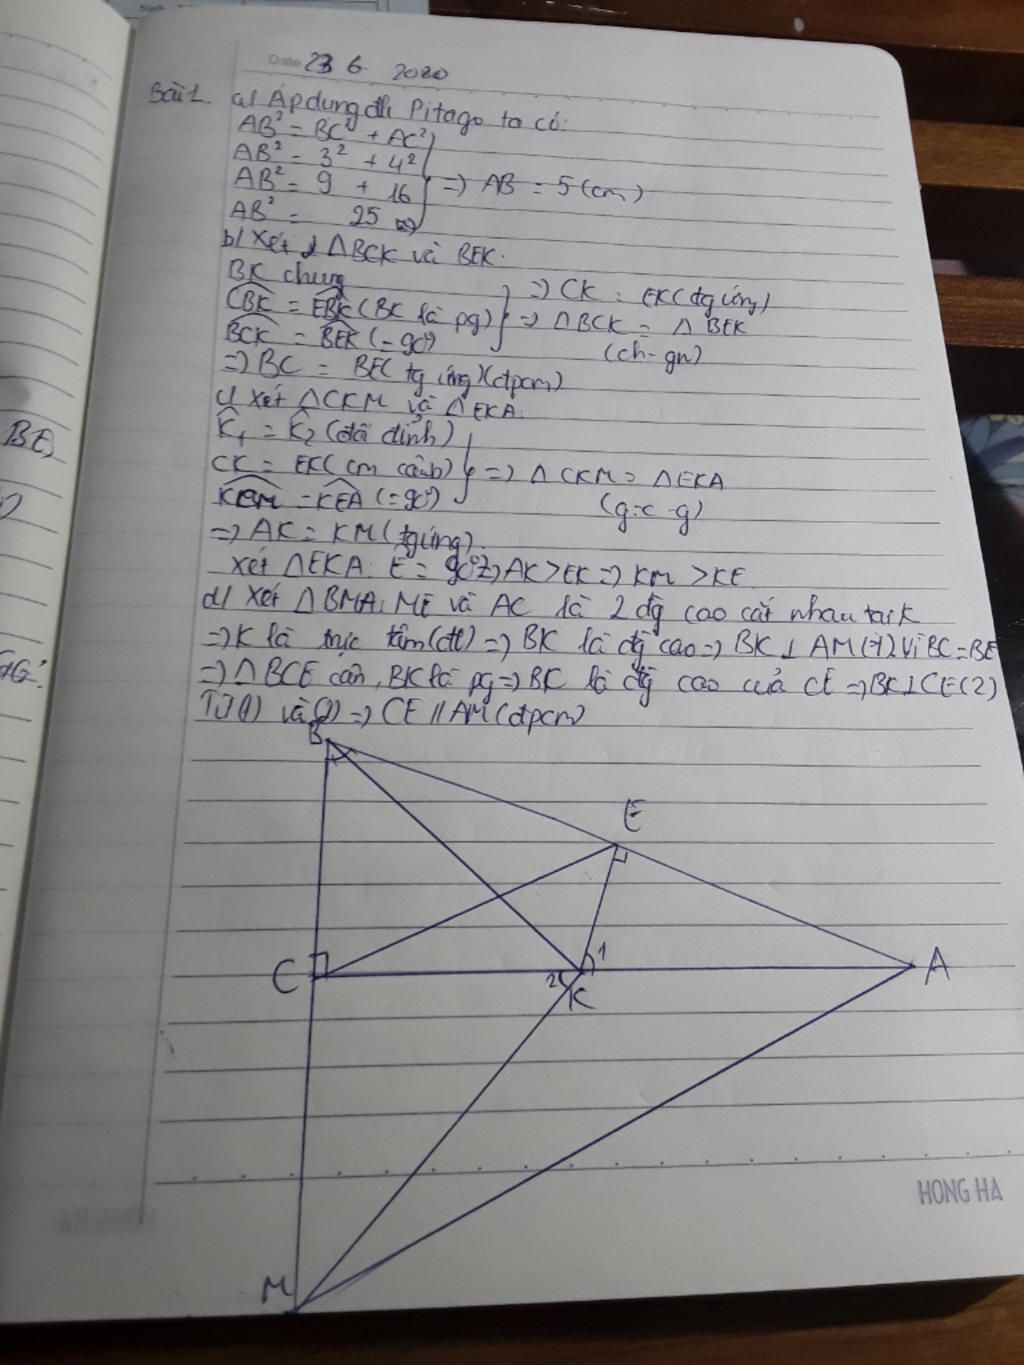 Date 23 6 2020
Bài 1. a) Áp dụng đl Pitago ta có:
AB² = BC² + AC²
AB² = 3² + 4²
AB² = 9 + 16 => AB = 5 (cm)
AB² = 25
b) Xét 2 △BCK và BEK.
BK chung => CK = EK (đg ứng)
CBK = EBK (BK là pg) => △BCK = △BEK
BCK = BEK (= 90°) (ch-gn)
=> BC = BE (tg ứng) (đpcm)
c) Xét △CKM và △EKA.
K₁ = K₂ (đđ đỉnh)
CK = EK (cm câu b) => △CKM = △EKA
KCM = KEA (= 90°) (g-c-g)
=> AK = KM (tg ứng)
Xét △EKA: E = 90° => AK > EK => KM > KE
d) Xét △BMA: ME và AC là 2 đg cao cắt nhau tại K
=> K là trực tâm (đl) => BK là đg cao => BK ⊥ AM (1) Vì BC = BE
=> △BCE cân, BK là pg => BK là đg cao của CE => BK ⊥ CE (2)
Từ (1) và (2) => CE // AM (đpcm)
B
E
C
2
1
K
A
M
HONG HA
BE,